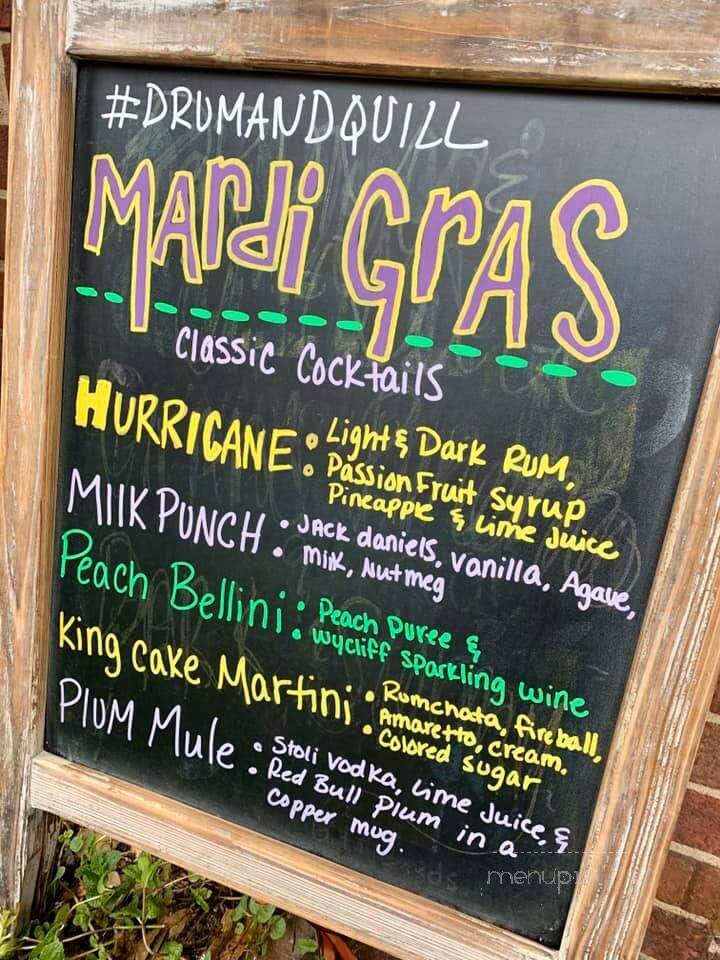 #DRUMANDQUILL
MARdi GRAS
Classic Cocktails
HURRICANE: Light & Dark RUM,
Passion Fruit Syrup
Pineapple & Lime Juice
MIlK PUNCH: JACK daniels, vanilla, Agave,
milk, Nutmeg
Peach Bellini: Peach Puree &
wycliff Sparkling wine
King cake Martini: Rumchata, fireball,
Amaretto, cream.
Colored sugar
PlUM Mule: Stoli vodka, Lime Juice, &
Red Bull Plum in a
copper mug.